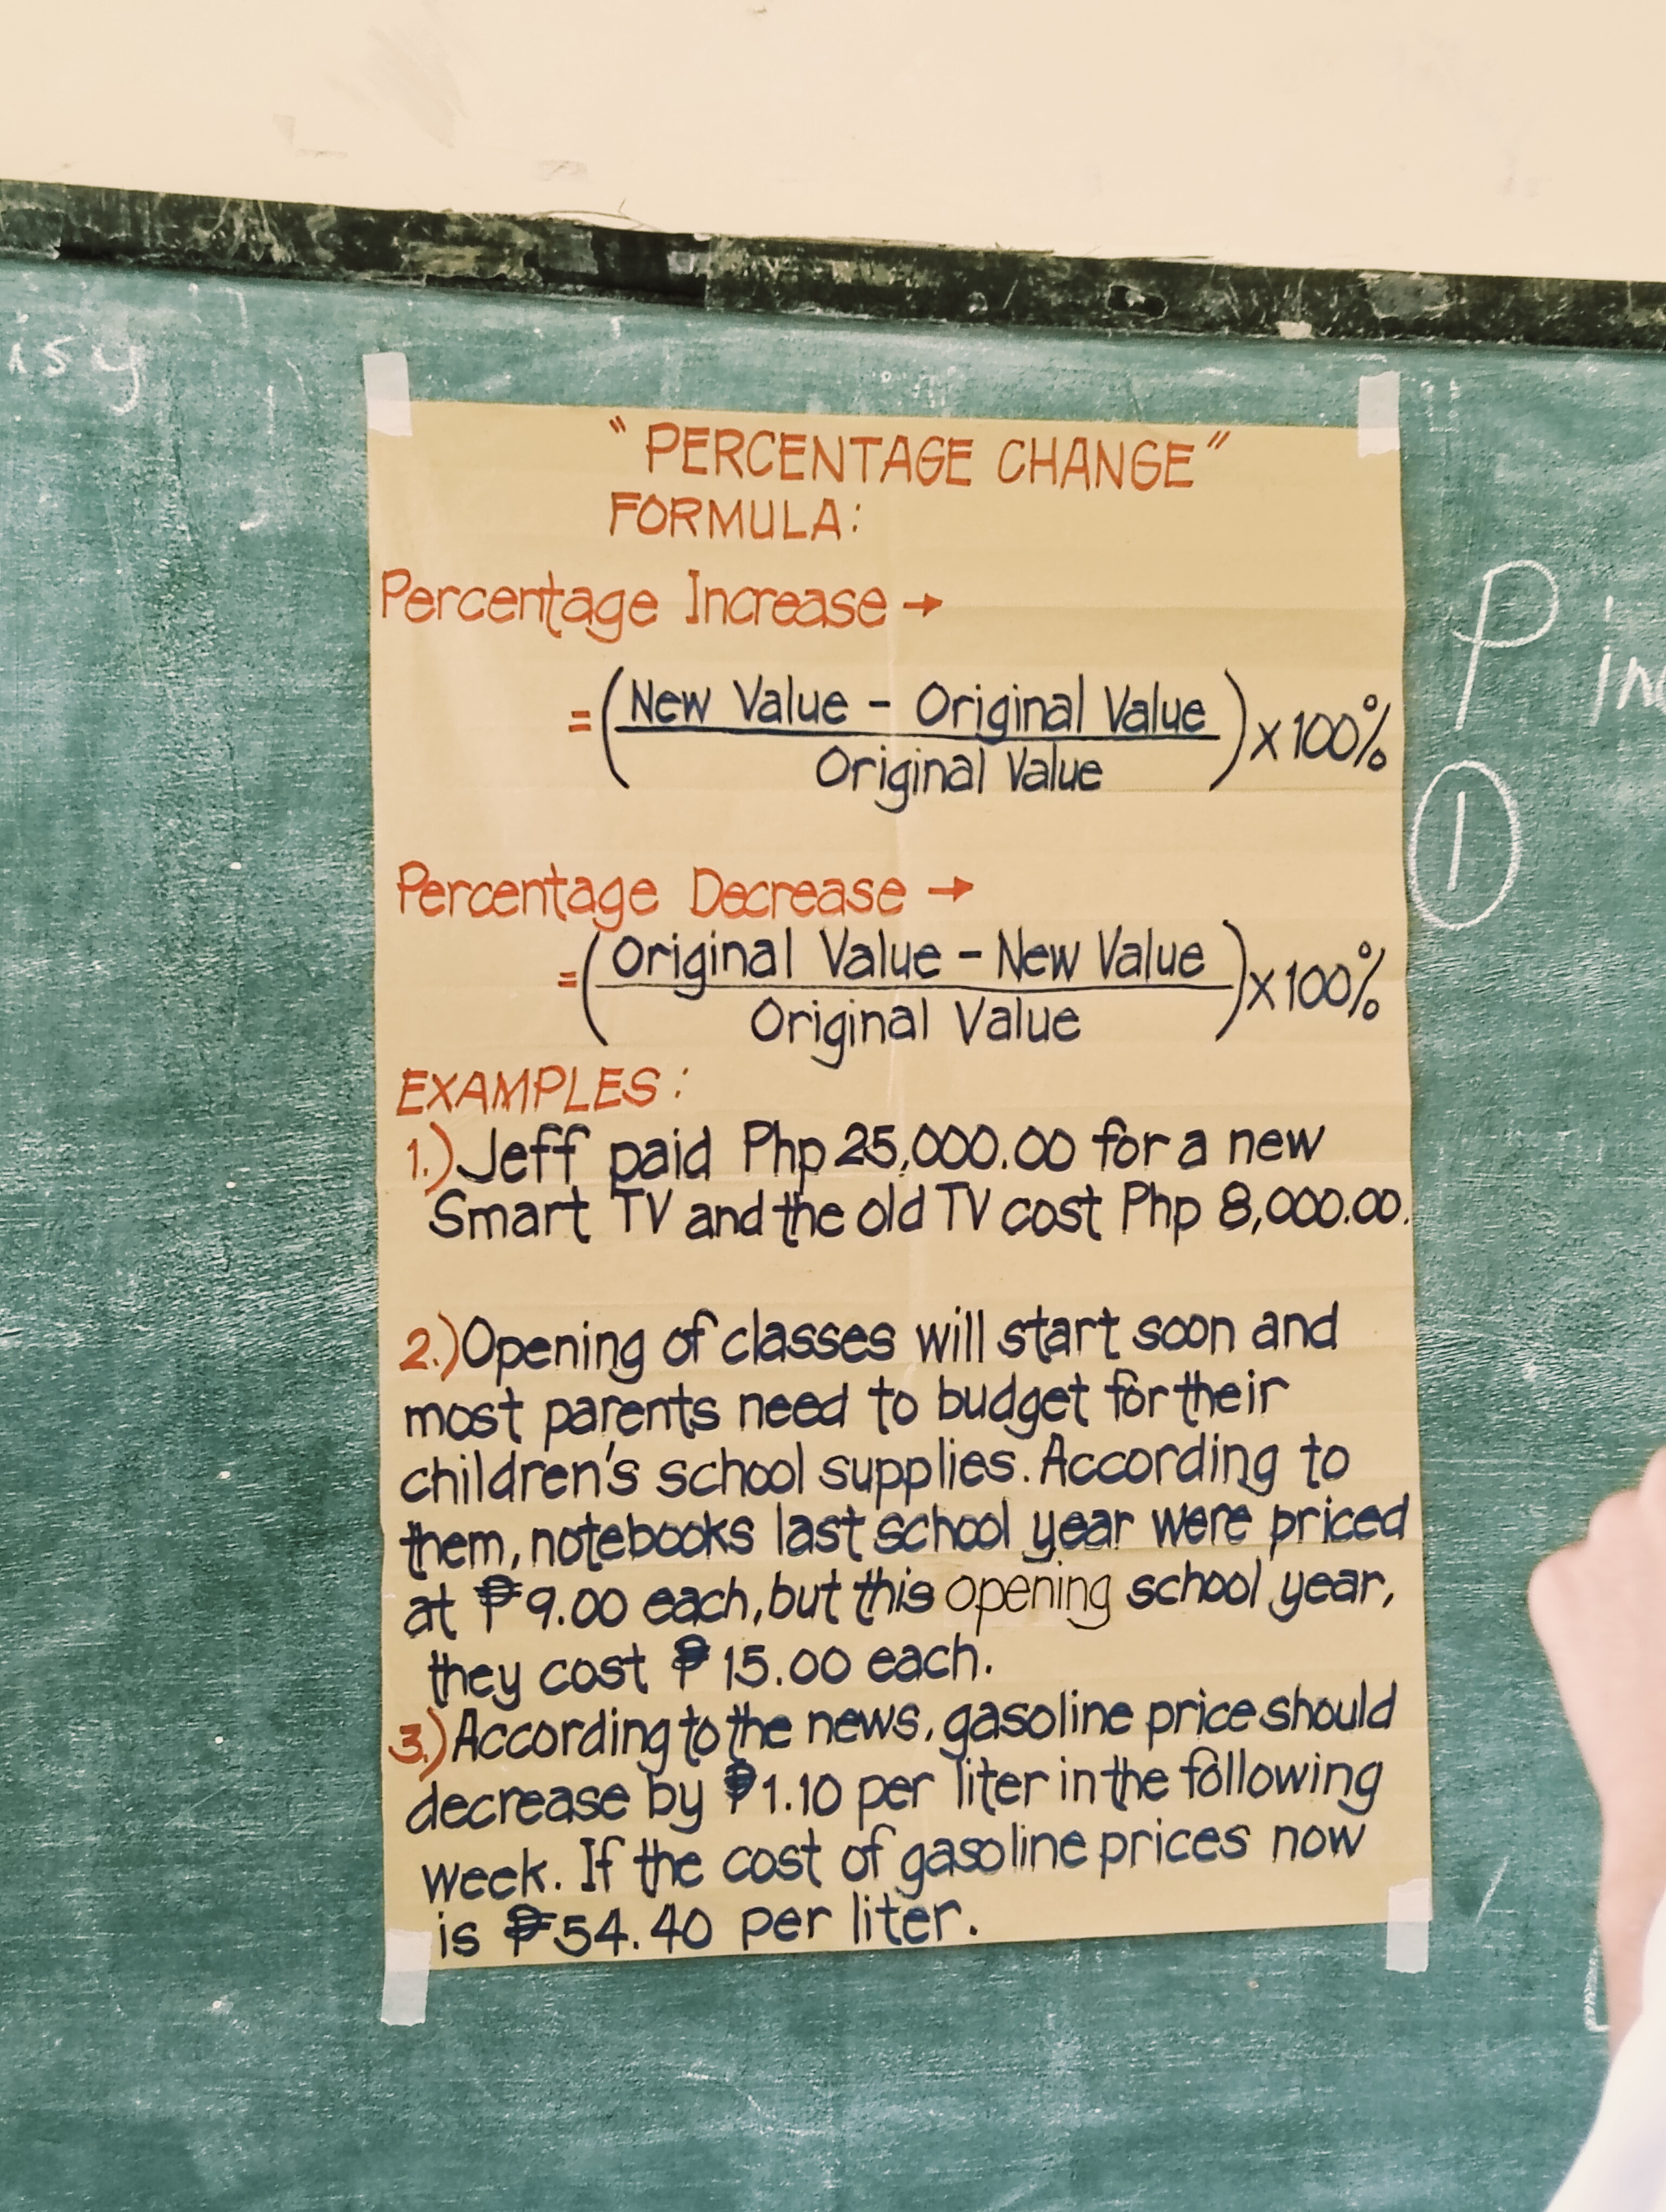 isy
" PERCENTAGE CHANGE "
FORMULA:
Percentage Increase →
= (New Value - Original Value / Original Value) x 100%
Percentage Decrease →
= (Original Value - New Value / Original Value) x 100%
EXAMPLES:
1.) Jeff paid Php 25,000.00 for a new
Smart TV and the old TV cost Php 8,000.00.
2.) Opening of classes will start soon and
most parents need to budget for their
children's school supplies. According to
them, notebooks last school year were priced
at ₱9.00 each, but this opening school year,
they cost ₱15.00 each.
3.) According to the news, gasoline price should
decrease by ₱1.10 per liter in the following
week. If the cost of gasoline prices now
is ₱54.40 per liter.
P in
1